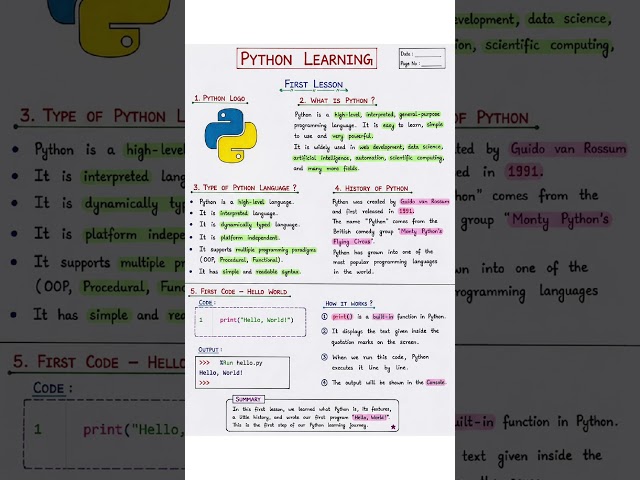 PYTHON LEARNING
Date :
Page No :
FIRST LESSON
1. PYTHON LOGO
2. WHAT IS PYTHON ?
Python is a high-level, interpreted, general-purpose
programming language. It is easy to learn, simple
to use and very powerful.
It is widely used in web development, data science,
artificial intelligence, automation, scientific computing,
and many more fields.
3. TYPE OF PYTHON LANGUAGE ?
• Python is a high-level language.
• It is interpreted language.
• It is dynamically typed language.
• It is platform independent.
• It supports multiple programming paradigms
(OOP, Procedural, Functional).
• It has simple and readable syntax.
4. HISTORY OF PYTHON
Python was created by Guido van Rossum
and first released in 1991.
The name "Python" comes from the
British comedy group "Monty Python's
Flying Circus".
Python has grown into one of the
most popular programming languages
in the world.
5. FIRST CODE – HELLO WORLD
CODE :
1 print("Hello, World!")
OUTPUT :
>>> %Run hello.py
Hello, World!
>>>
HOW IT WORKS ?
1 print() is a built-in function in Python.
2 It displays the text given inside the
quotation marks on the screen.
3 When we run this code, Python
executes it line by line.
4 The output will be shown in the Console.
SUMMARY
In this first lesson, we learned what Python is, its features,
a little history, and wrote our first program "Hello, World!".
This is the first step of our Python learning journey.
3. TYPE OF PYTHON L
• Python is a high-level
• It is interpreted lang
• It is dynamically type
• It is platform indepen
• It supports multiple p
(OOP, Procedural, Fun
• It has simple and rea
5. FIRST CODE – HELLO
CODE :
1 print("Hello,
velopment, data science,
on, scientific computing,
OF PYTHON
ted by Guido van Rossum
ed in 1991.
hon" comes from the
group "Monty Python's
wn into one of the
programming languages
uilt-in function in Python.
text given inside the